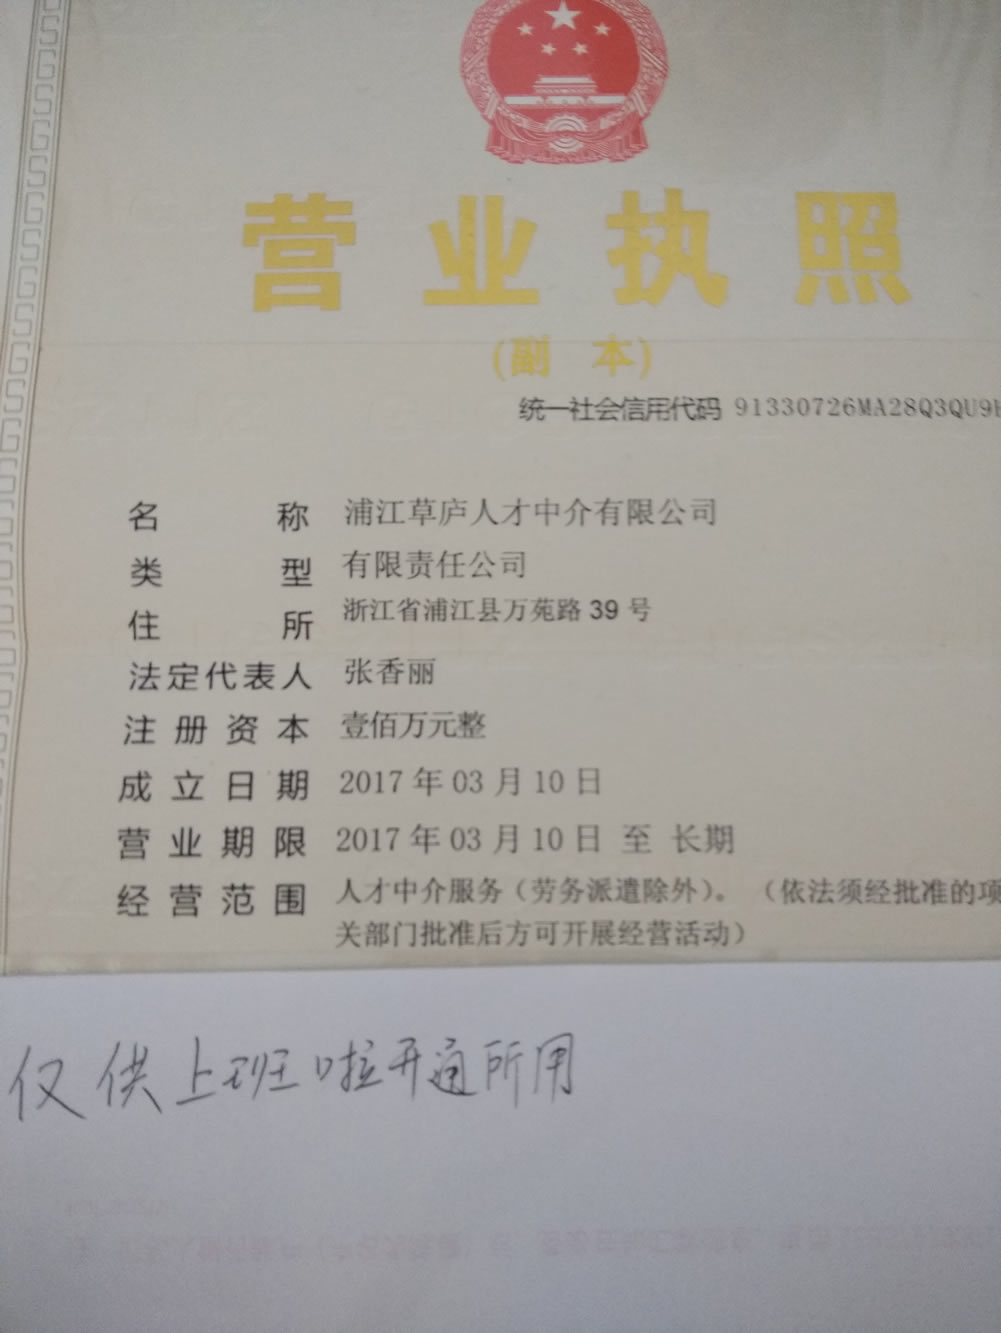 营业执照
(副 本)
统一社会信用代码 91330726MA28Q3QU9
名称 浦江草庐人才中介有限公司
类型 有限责任公司
住所 浙江省浦江县万苑路 39 号
法定代表人 张香丽
注册资本 壹佰万元整
成立日期 2017 年 03 月 10 日
营业期限 2017 年 03 月 10 日 至 长期
经营范围 人才中介服务（劳务派遣除外）。（依法须经批准的项
关部门批准后方可开展经营活动）
仅供上班啦开通所用